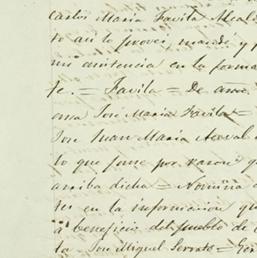 Carlos Maria Favila Alcal
to asi lo provei, mandé y f
mi asistencia en la forma
fe. = Favila = De asis
cia José Maria Favila =
José Juan Maria
lo que fuese por razon q
arriba dicha = Nomina d
se en la informacion qu
á beneficio del pueblo de
ta José Miguel Serrato = Ger